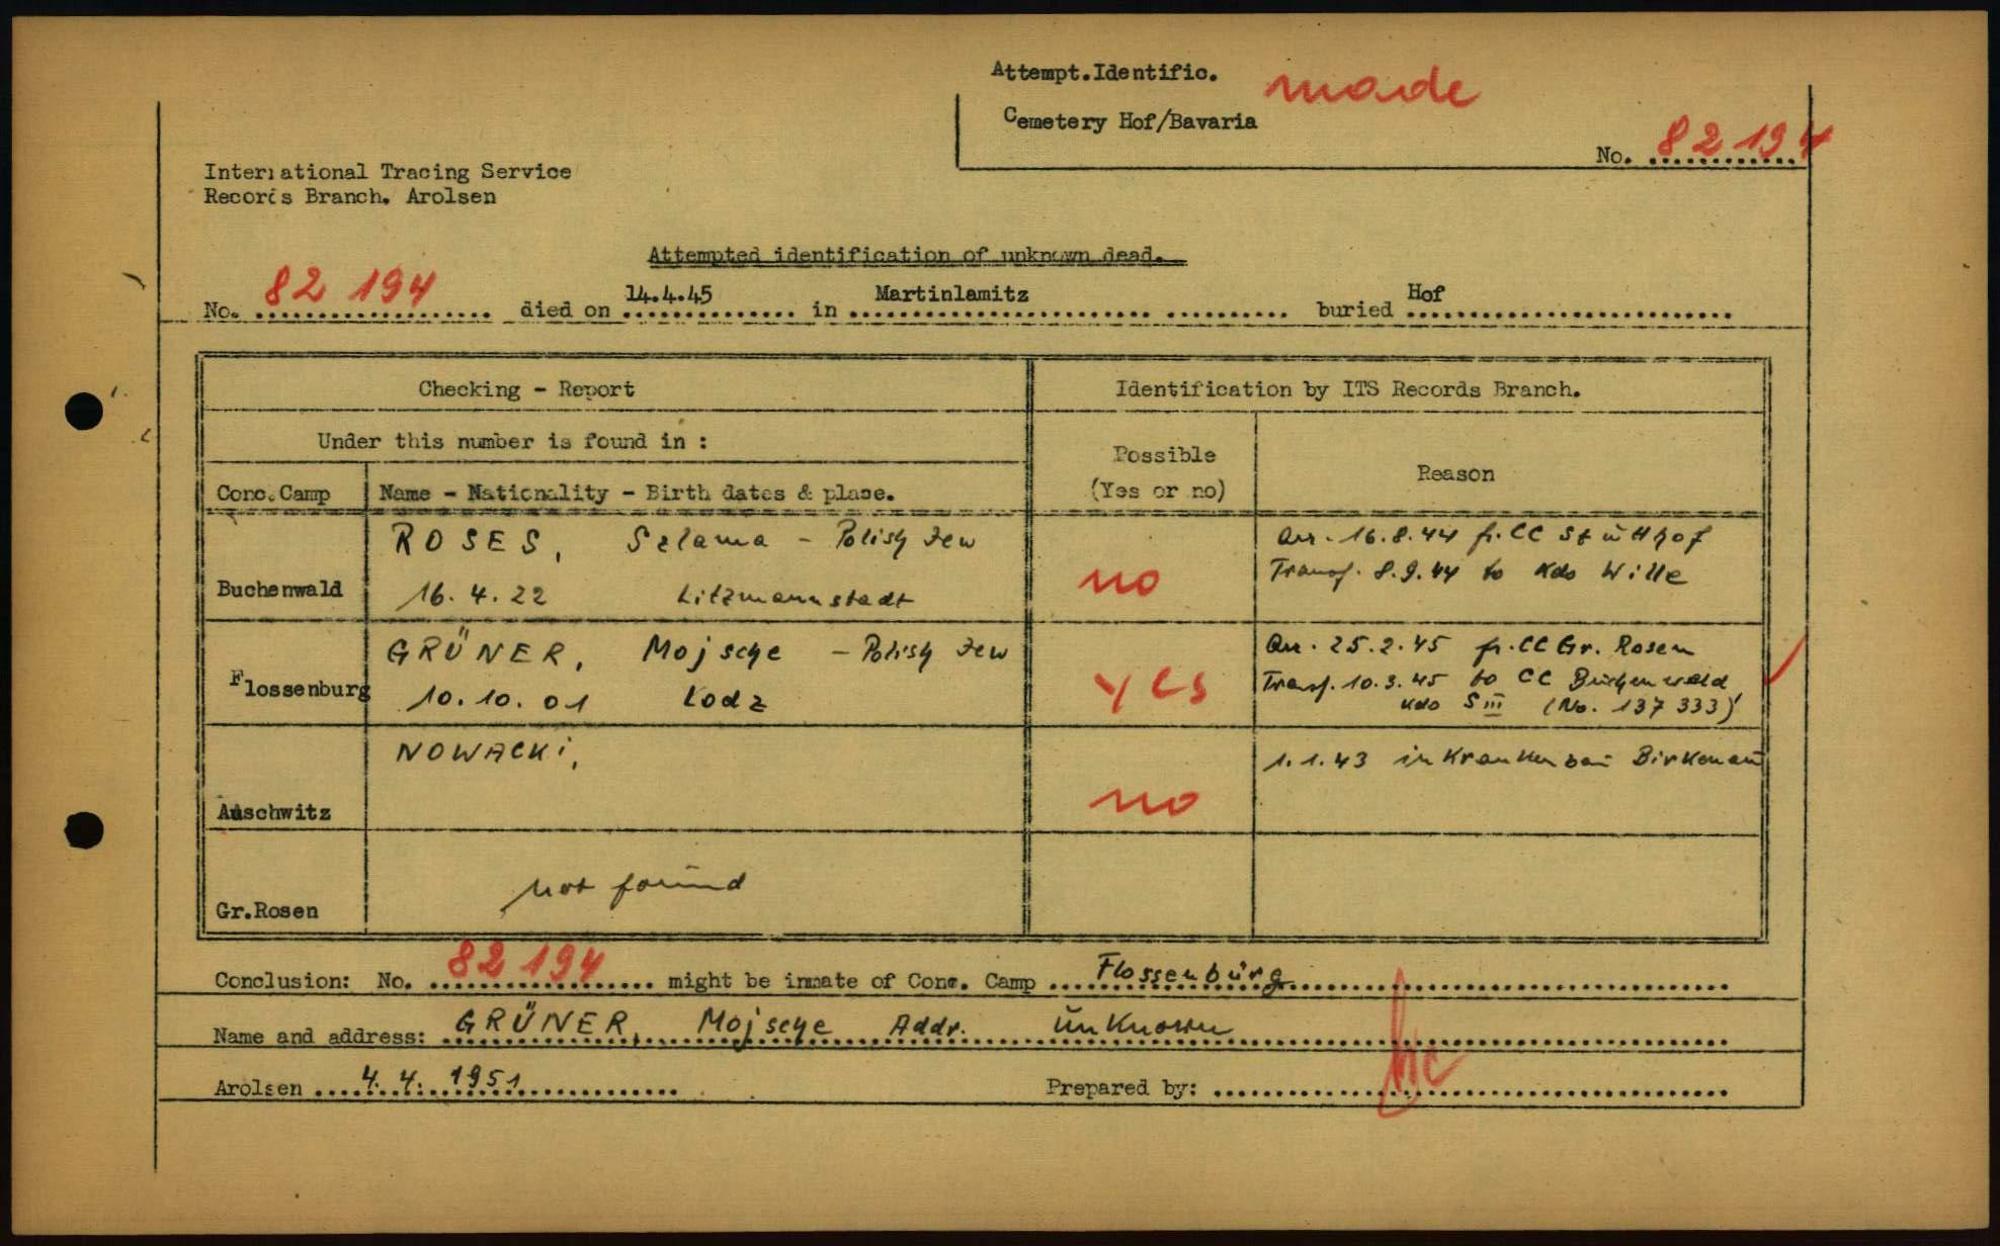 Attempt.Identific.
made
Cemetery Hof/Bavaria
No. 82 194
International Tracing Service
Records Branch. Arolsen
Attempted identification of unknown dead.
No. 82 194 died on 14.4.45 in Martinlamitz buried Hof
Checking - Report
Identification by ITS Records Branch.
Under this number is found in :
Possible
(Yes or no)
Reason
Conc.Camp
Name - Nationality - Birth dates & place.
Buchenwald
ROSES, Szlama - Polish Jew
16.4.22 Litzmannstadt
no
Arr. 16.8.44 fr. CC Stutthof
Transf. 8.9.44 to Kdo Wille
Flossenburg
GRÜNER, Mojsche - Polish Jew
10.10.01 Lodz
yes
Arr. 25.2.45 fr. CC Gr. Rosen
Transf. 10.3.45 to CC Buchenwald
Kdo S III (No. 137 333)
Auschwitz
NOWACKI,
no
1.1.43 im Krankenbau Birkenau
Gr.Rosen
not found
Conclusion: No. 82 194 might be inmate of Conc. Camp Flossenburg
Name and address: GRÜNER, Mojsche Addr. unknown
Arolsen 4.4.1951
Prepared by: